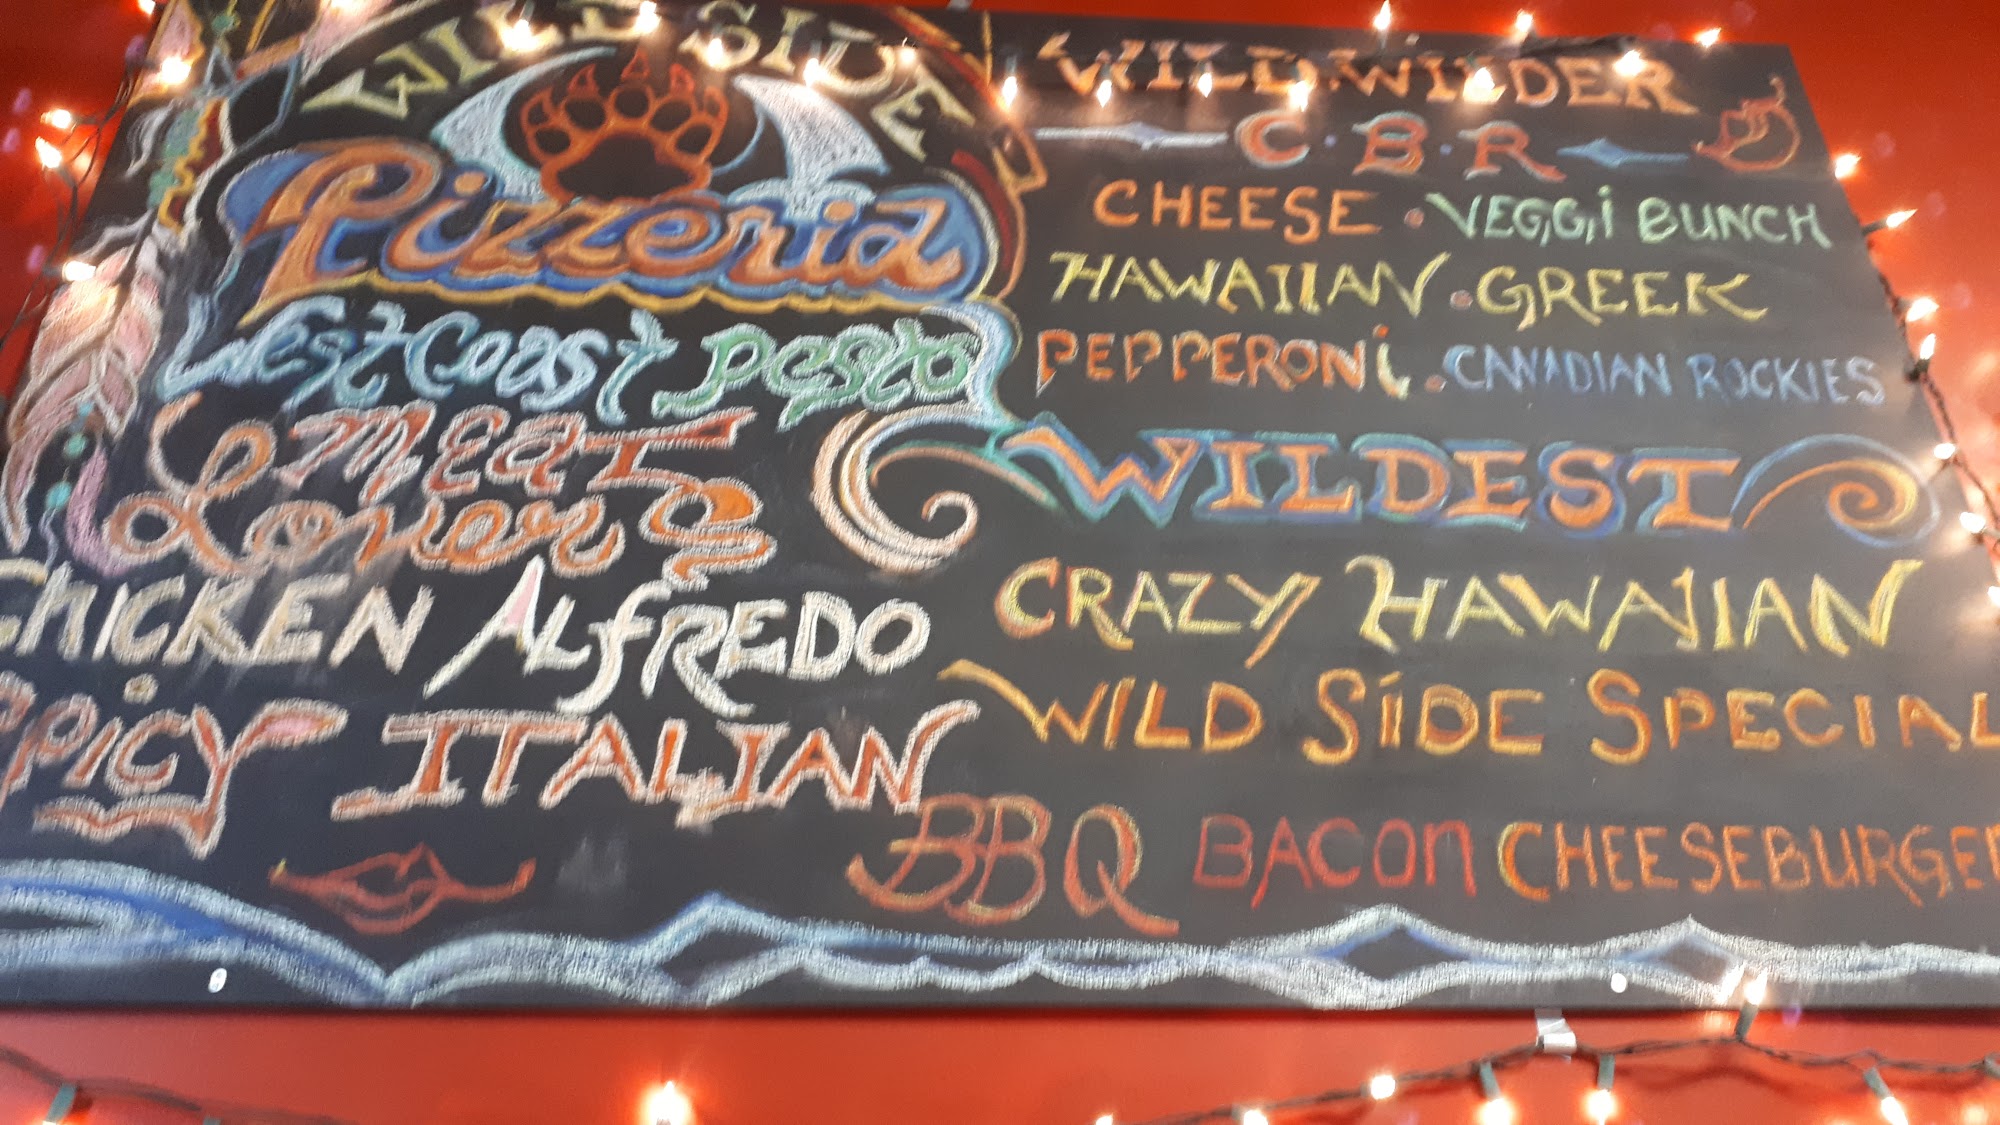 WILD SIDE
Pizzeria
West Coast Pesto
MEAT
Lovers
CHICKEN ALFREDO
SPICY ITALIAN
WILD.WILDER
C.B.R
CHEESE . VEGGi BUNCH
HAWAIIAN . GREEK
PEPPERONi . CANADIAN ROCKIES
WILDEST
CRAZY HAWAIIAN
WILD SiDE SPECIAL
BBQ BACON CHEESEBURGER